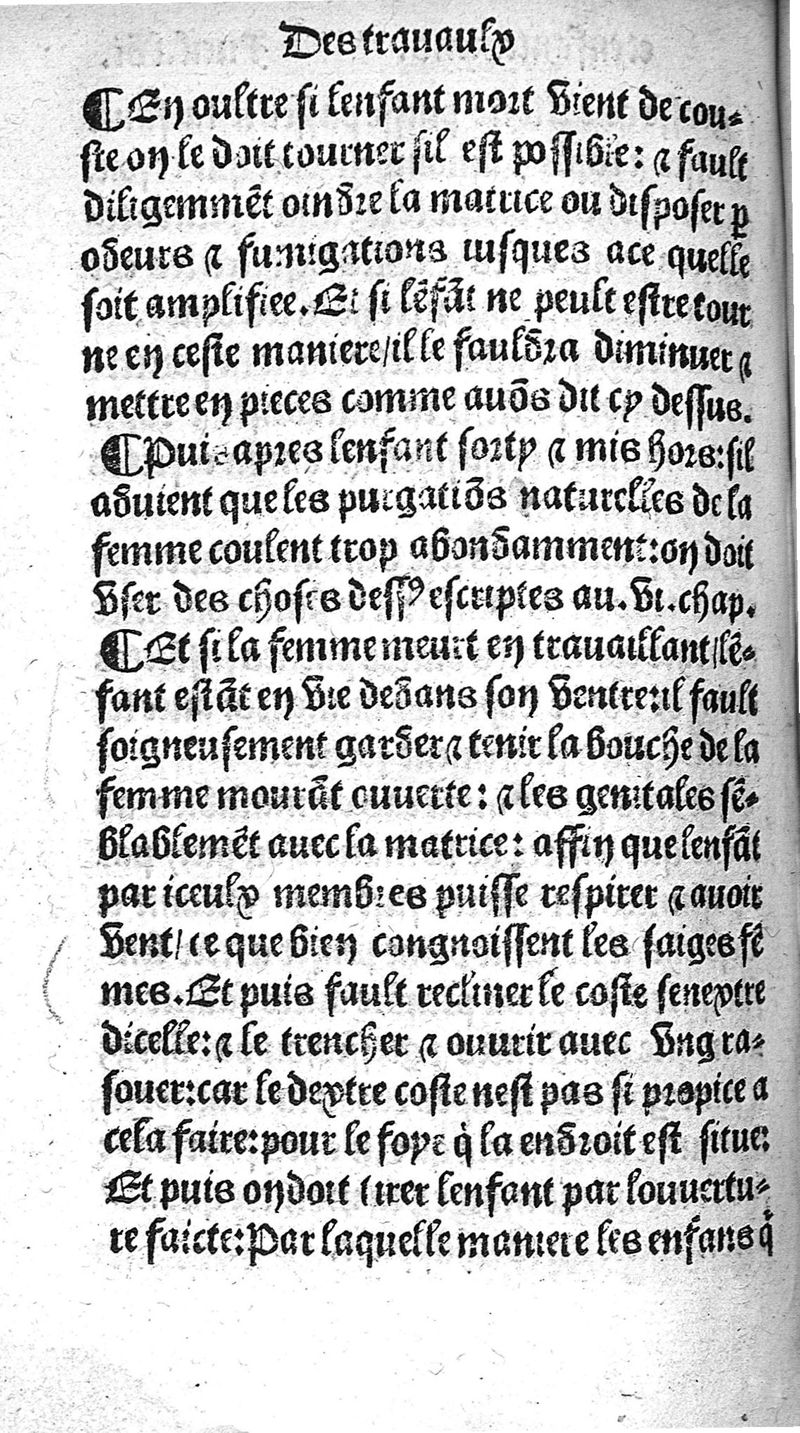 Des trauaulx
¶En oultre si lenfant mort vient de cou-
ste on le doit tourner sil est possible: ⁊ fault
diligemmēt oindre la matrice ou disposer ꝑ
odeurs ⁊ fumigations iusques ace quelle
soit amplifiee. Et si lēfāt ne peult estre tour
ne en ceste maniere/il le fauldra diminuer ⁊
mettre en pieces comme auōs dit cy dessus.
¶Puis apres lenfant sorty ⁊ mis hors: sil
aduient que les purgatiōs naturelles de la
femme coulent trop abondamment: on doit
vser des choses dessꝰ escriptes au. vi. chap.
¶Et si la femme meurt en trauaillant/lē-
fant estāt en vie dedans son ventre: il fault
soigneusement garder ⁊ tenir la bouche de la
femme mourāt ouuerte: ⁊ les genitales sē-
blablemēt auec la matrice: affin que lenfāt
par iceulx membres puisse respirer ⁊ auoir
vent/ce que bien congnoissent les saiges fē
mes. Et puis fault recliner le coste senextre
dicelle: ⁊ le trencher ⁊ ouurir auec vng ra-
souer: car le dextre coste nest pas si propice a
cela faire: pour le foye q̇ la endroit est situe:
Et puis on doit tirer lenfant par louuertu-
re faicte: Par laquelle maniere les enfans q̇